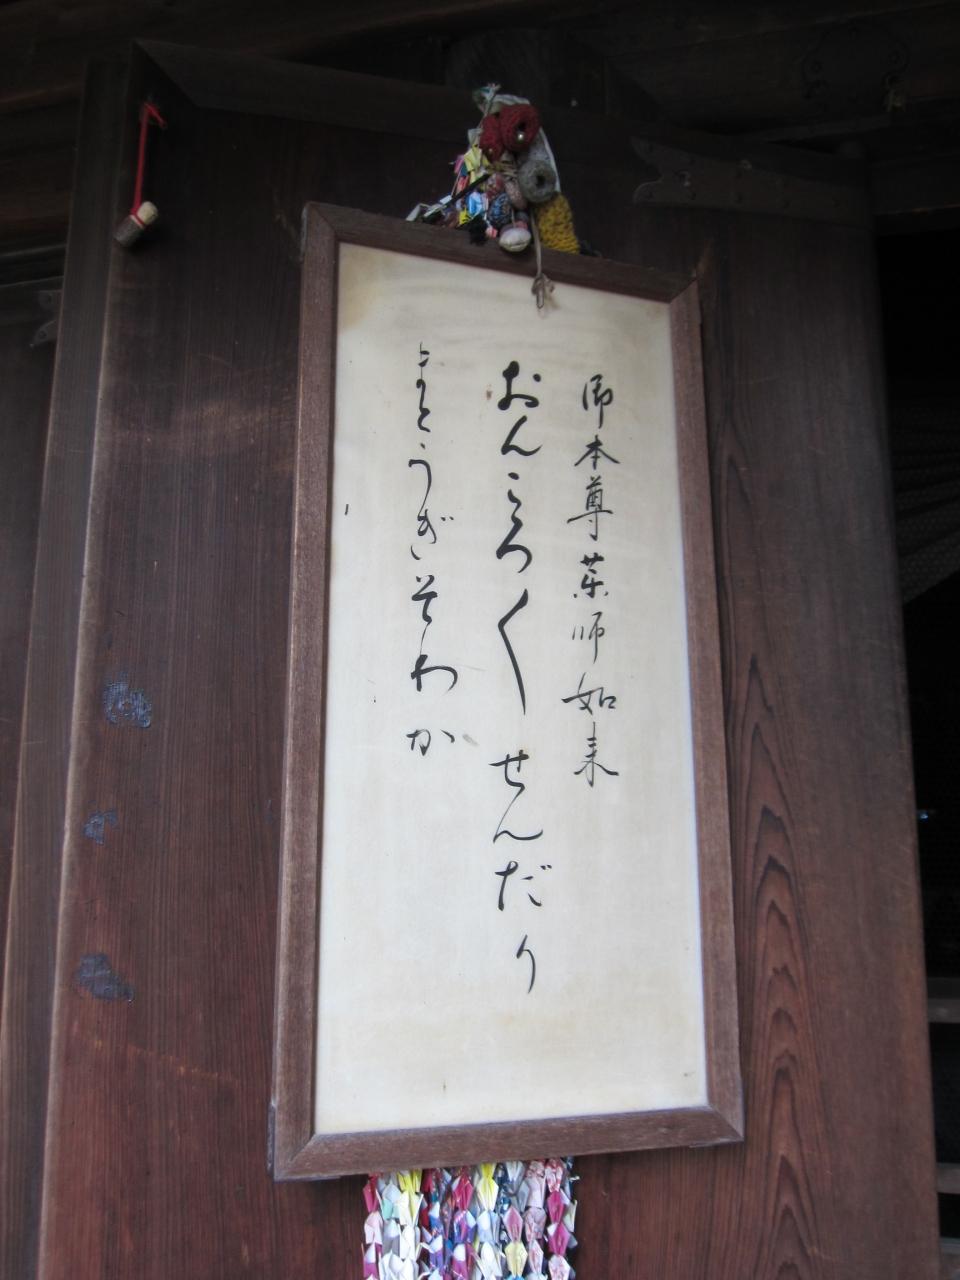 御本尊薬師如来
おんころ〱せんだり
まとうぎそわか